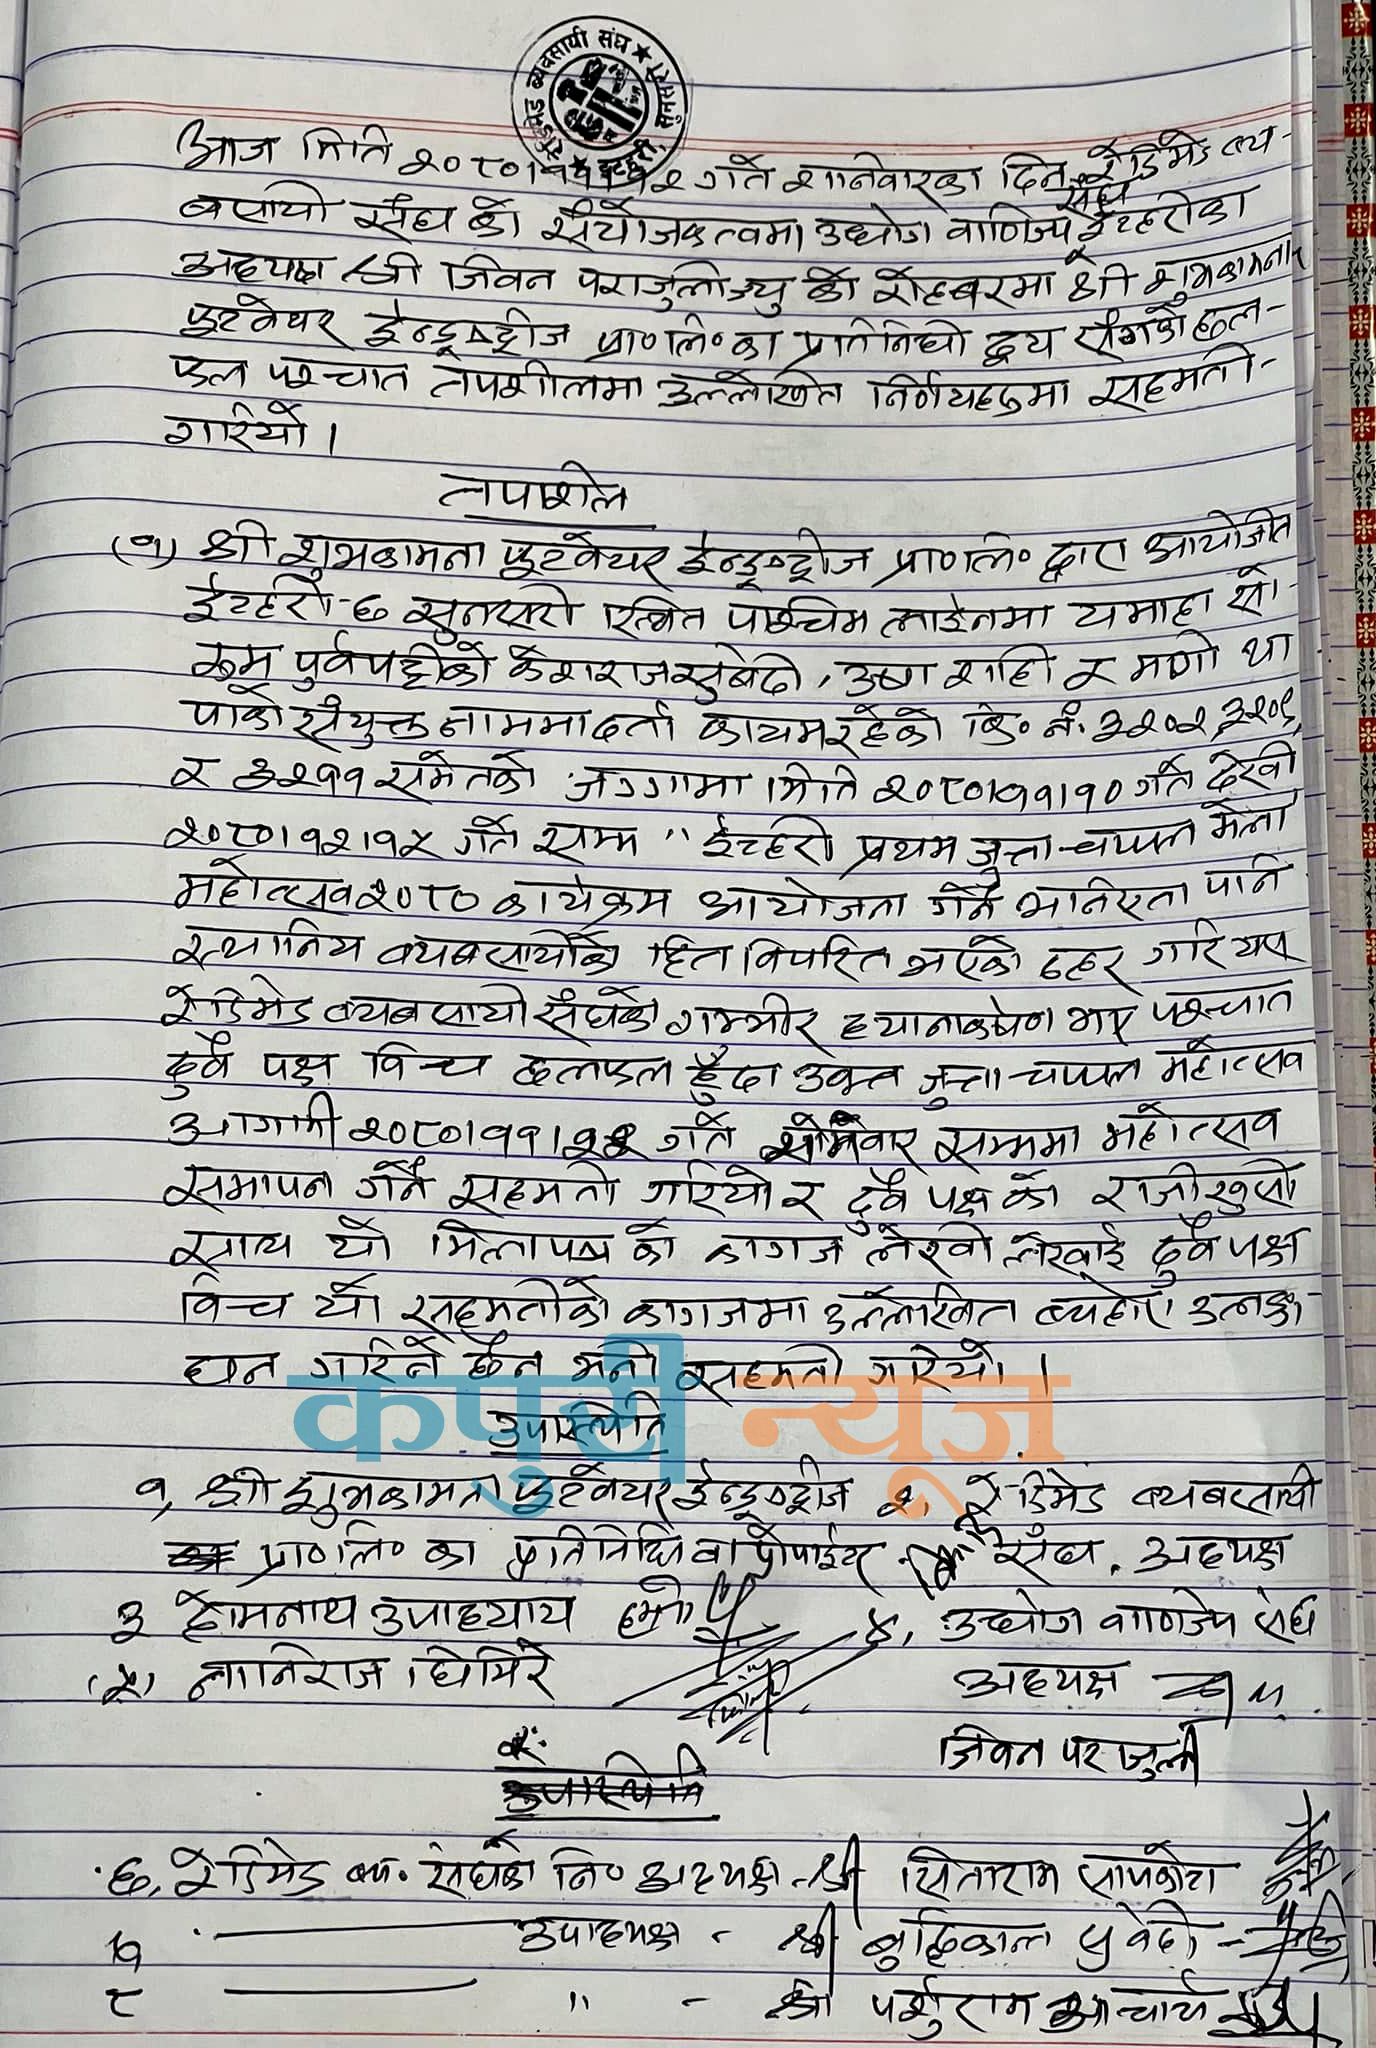 रेडिमेड व्यवसायी संघ ★ सुनसरी ★ इटहरी,
आज मिति २०८०।११।१२ गते शनिवारका दिन रेडिमेड व्य-
बसायी संघ को संयोजकत्वमा उद्योग वाणिज्य संघ ईटहरीका
अध्यक्ष श्री जिवन पराजुली ज्यु को रोहबरमा श्री शुभकामना
फुटवेयर ईन्डूष्ट्रीज प्रा०लि० का प्रतिनिधी द्वय सँगको छल-
फल पश्चात तपशीलमा उल्लेखित निर्णयहरुमा सहमती
गरियो ।
तपशिल
(१) श्री शुभकामना फुटवेयर ईन्डूष्ट्रीज प्रा०लि० द्वारा आयोजीत
ईटहरी-६ सुनसरी स्थित पश्चिम लाईनमा यमाहा सो-
रुम पुर्वपट्टीको केशराज सुबेदी, उषा शाही र मणी था
पाको संयुक्त नाममा दर्ता कायम रहेको कि० नं. ३२०२, ३२०९,
र ३२११ समेतको जग्गामा मिति २०८०।११।१० गते देखी
२०८०।१२।१५ गते सम्म " ईटहरी प्रथम जुत्ता चप्पल मेला
महोत्सव २०८० कार्यक्रम आयोजना गर्ने भनिएता पनि
स्थानिय ब्यबसायीको हित विपरित भएको ठहर गरि यस
रेडिमेड ब्यबसायी संघको गम्भीर ध्यानाकर्षण भए पश्चात
दुवै पक्ष विच छलफल हुँदा उक्त जुत्ता चप्पल महोत्सव
आगामी २०८०।११। गते सोमवार सम्ममा महोत्सव
समापन गर्ने सहमती गरियो र दुवै पक्ष को राजीखुसी
साथ यो मिलापत्र को कागज लेखी लेखाई दुवै पक्ष
विच यो सहमतीको कागजमा उल्लेखित ब्यहोरा उल्लङ्-
घन गरिने छैन भनी सहमती गरियो ।
कपुरी न्यूज
उपस्थिति
१, श्री शुभकामना फुटवेयर ईन्डूष्ट्रीज २, रेडिमेड ब्यबसायी
प्रा०लि० का प्रतिनिधि वा प्रोपाईटर संघ. अध्यक्ष
३ होमनाथ उपाध्याय ४, उद्योग वाणिज्य संघ
(५) लानिराज घिमिरे अध्यक्ष
जिवन पराजुली
उपस्थिति
६, रेडिमेड ब्य. संघको नि० अध्यक्ष - श्री सिताराम सापकोटा
७ उपाध्यक्ष - श्री बुद्धिलाल
८ " - श्री पर्शुराम आचार्य